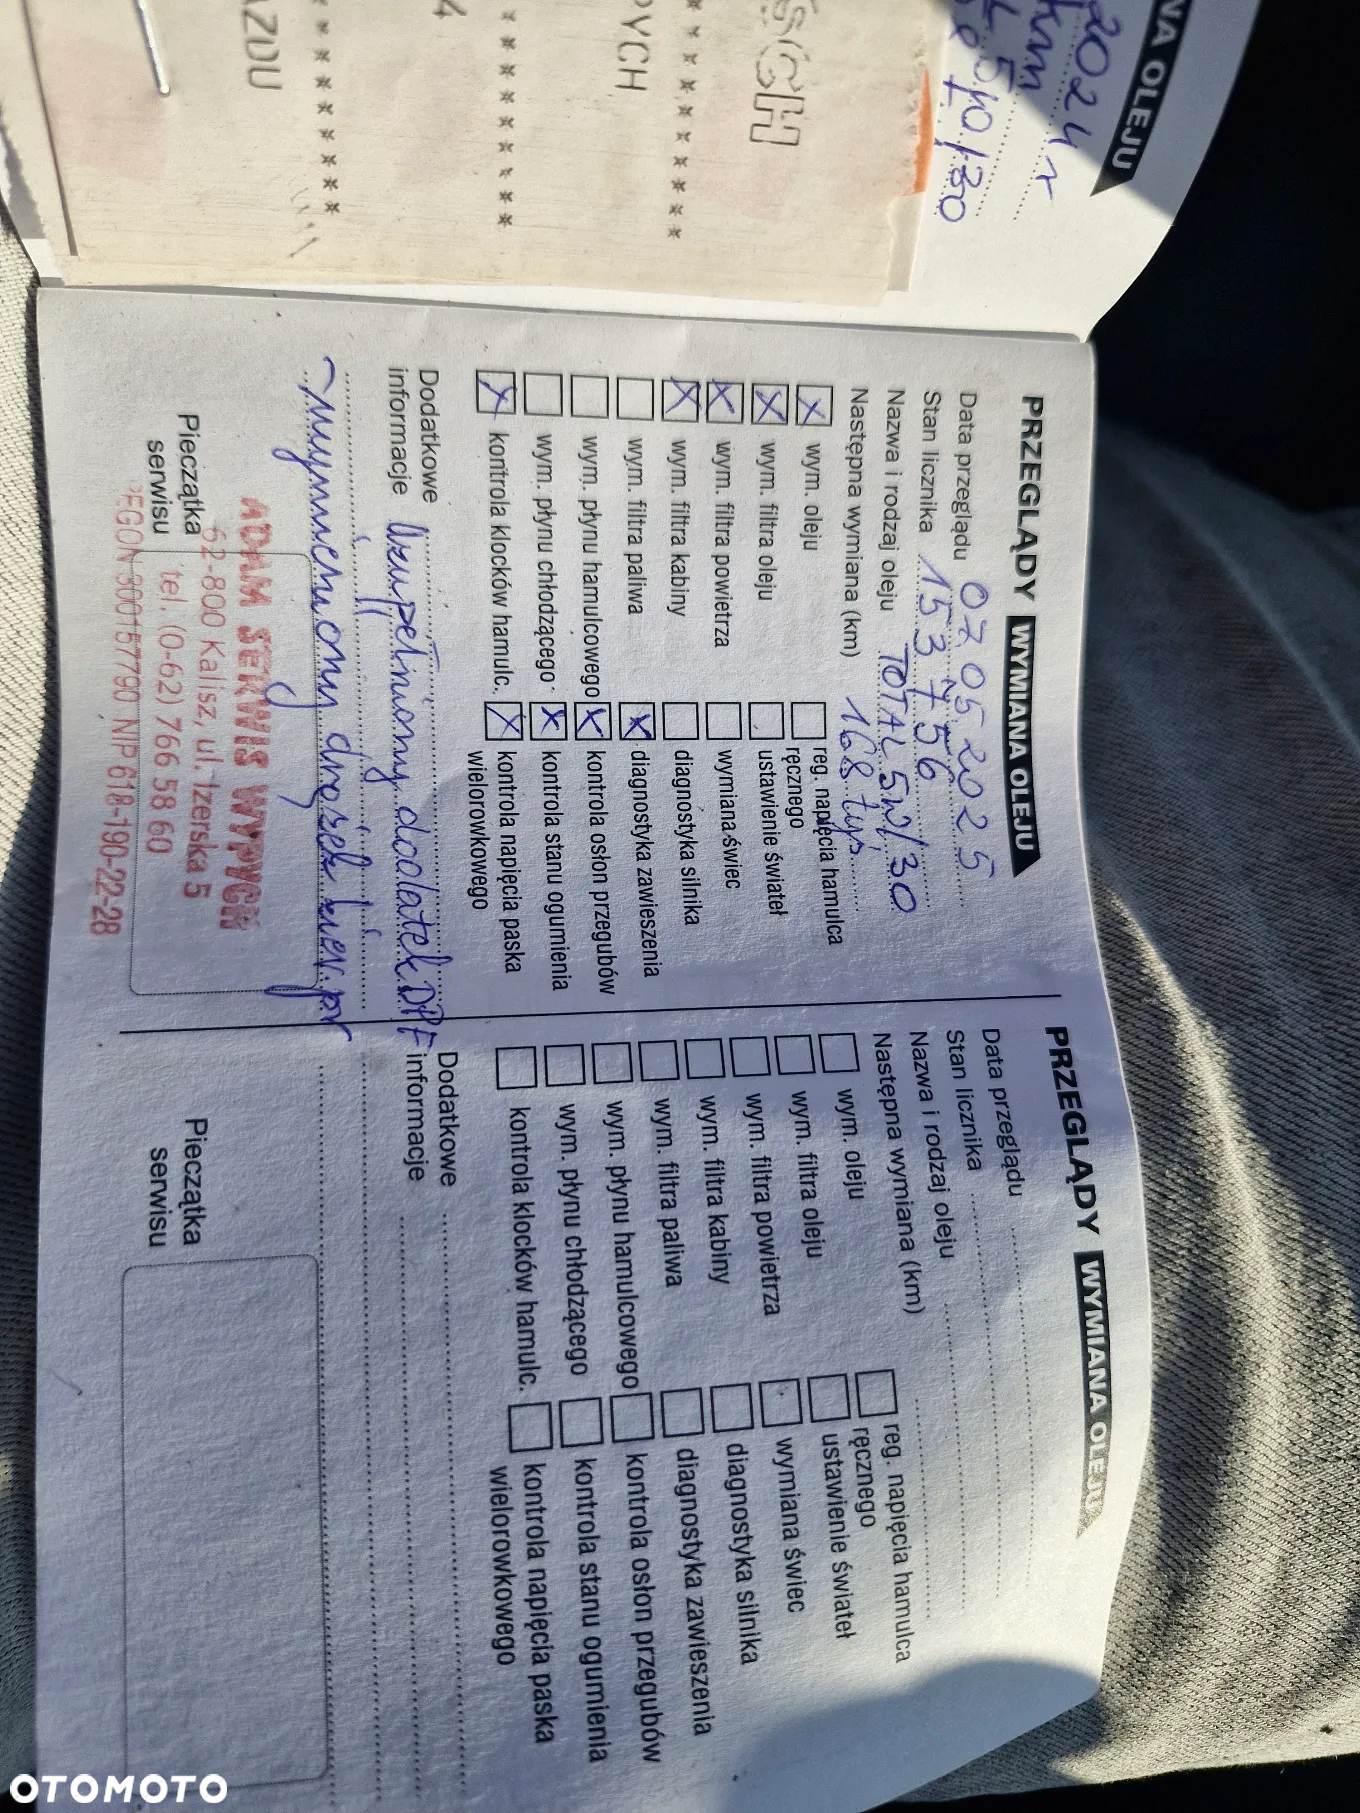 NA OLEJU
2024 r
km
5/0/30
SCH
PYCH
* * * * * * * * *
4
* * * * * * * * *
AZDU
* * * * * * * * *
PRZEGLĄDY WYMIANA OLEJU
Data przeglądu 07 05 2025
Stan licznika 153 756
Nazwa i rodzaj oleju TOTAL 5W/30
Następna wymiana (km) 168 tys
wym. oleju
wym. filtra oleju
wym. filtra powietrza
wym. filtra kabiny
wym. filtra paliwa
wym. płynu hamulcowego
wym. płynu chłodzącego
kontrola klocków hamulc.
reg. napięcia hamulca
ręcznego
ustawienie świateł
wymiana świec
diagnostyka silnika
diagnostyka zawieszenia
kontrola osłon przegubów
kontrola stanu ogumienia
kontrola napięcia paska
wielorowkowego
Dodatkowe
informacje Uzupełniony dodatek DPF
- wymieniony drążek kier. pr
Pieczątka
serwisu
ADAM SERWIS WYPYCH
62-800 Kalisz, ul. Izerska 5
tel. (0-62) 766 58 60
REGON 300157790 NIP 618-190-22-28
PRZEGLĄDY WYMIANA OLEJU
Data przeglądu
Stan licznika
Nazwa i rodzaj oleju
Następna wymiana (km)
wym. oleju
wym. filtra oleju
wym. filtra powietrza
wym. filtra kabiny
wym. filtra paliwa
wym. płynu hamulcowego
wym. płynu chłodzącego
kontrola klocków hamulc.
reg. napięcia hamulca
ręcznego
ustawienie świateł
wymiana świec
diagnostyka silnika
diagnostyka zawieszenia
kontrola osłon przegubów
kontrola stanu ogumienia
kontrola napięcia paska
wielorowkowego
Dodatkowe
informacje
Pieczątka
serwisu
OTOMOTO